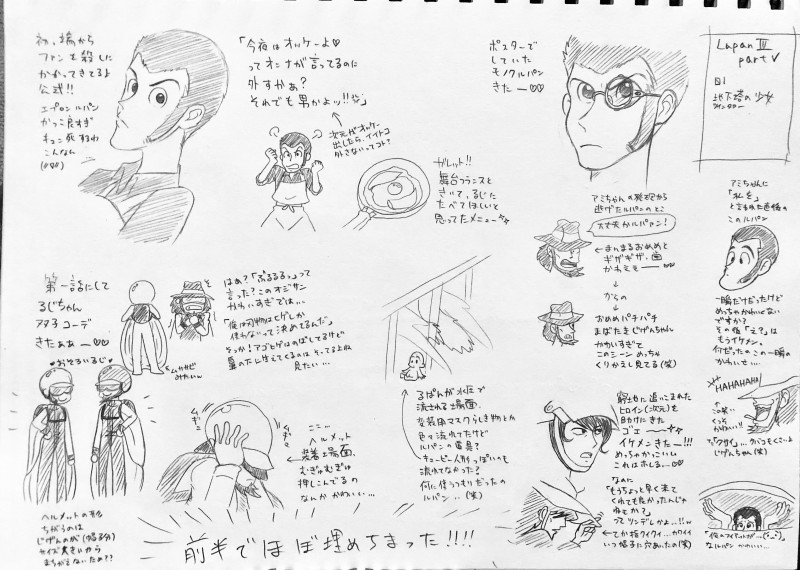 初っ端から
ファンを殺しに
かかってきてるよ
公式!!
エプロンルパン
かっこ良すぎ
キュン死するわ
こんなん
「今夜はオッケーよ♡
ってオンナが言ってるのに
外すかぁ?
それでも男かよッ!!」
次元がオッケー
出したら、イイトコ
外さないってコト?
ガレット!!
舞台フランスと
きいて、るじに
たべてほしいと
思ってたメニュー
ポスターで
していた
モノクルパン
きたー♡♡
Lupan III
part V
#1
地下塔の少女
アミちゃんの発砲から
逃げたルパンのとこ
大丈夫かルパァン!
←まんまるおめめと
ギザギザ歯
かわえぇー
↓
からの
↓
おめめパチパチ
まばたきじげんちゃん
かわいすぎて
このシーンめっちゃ
くりかえし見てる(笑)
アミちゃんに
「私を」
と言われた直後の
このルパン
一瞬だけだったけど
めっちゃかわいくない
ですか?
その後「え?」は
もうイケメン。
何だったのこの一瞬
のかわいせ…
第一話にして
るじちゃん
アタ子コーデ
きたぁぁー♡♡
♡おそろいるじ♡
ムササビ
みたいな
はぁ?「ぷるるるっ」って
言った?このオジサン
かわいすぎでは…
「俺は刃物はヒゲしか
使わないって決めてるんだ」
そっか!アゴヒゲはのばしてるけど
見たい…
ヘルメットの形
ちがうのは
じげんのが(帽子分)
サイズ大きいから
まちがえないため??
ここ…
ヘルメット
装着場面、
むぎゅむぎゅ
押しこんでるの
なんかかわいい…
るぱんが水圧で
流される場面、
変装用マスクらしき物とか
色々流れてたけど
ルパンの装具?
キューピー人形っぽいのも
流れてなかった?
何に使うつもりだったの
ルパン…(笑)
窮地に追いこまれた
ヒロイン(次元)を
助けにきた
ゴエ
イケメンきたー!!!
めっちゃかっこいい
これはホレる…♡
なのに
「もうちょっと早く来て
くれても良かったんじゃ
ねぇか?」
ってツンデレかよ…!!w
←てか指クイクイ…カワイイ
いつ帽子に穴あいたの(笑)
HAHAHAHA!
この笑い
くっそ
かわいい!!
じげんちゃん(笑)
なルパンかわいい…
前半でほぼ埋めちまった!!!!